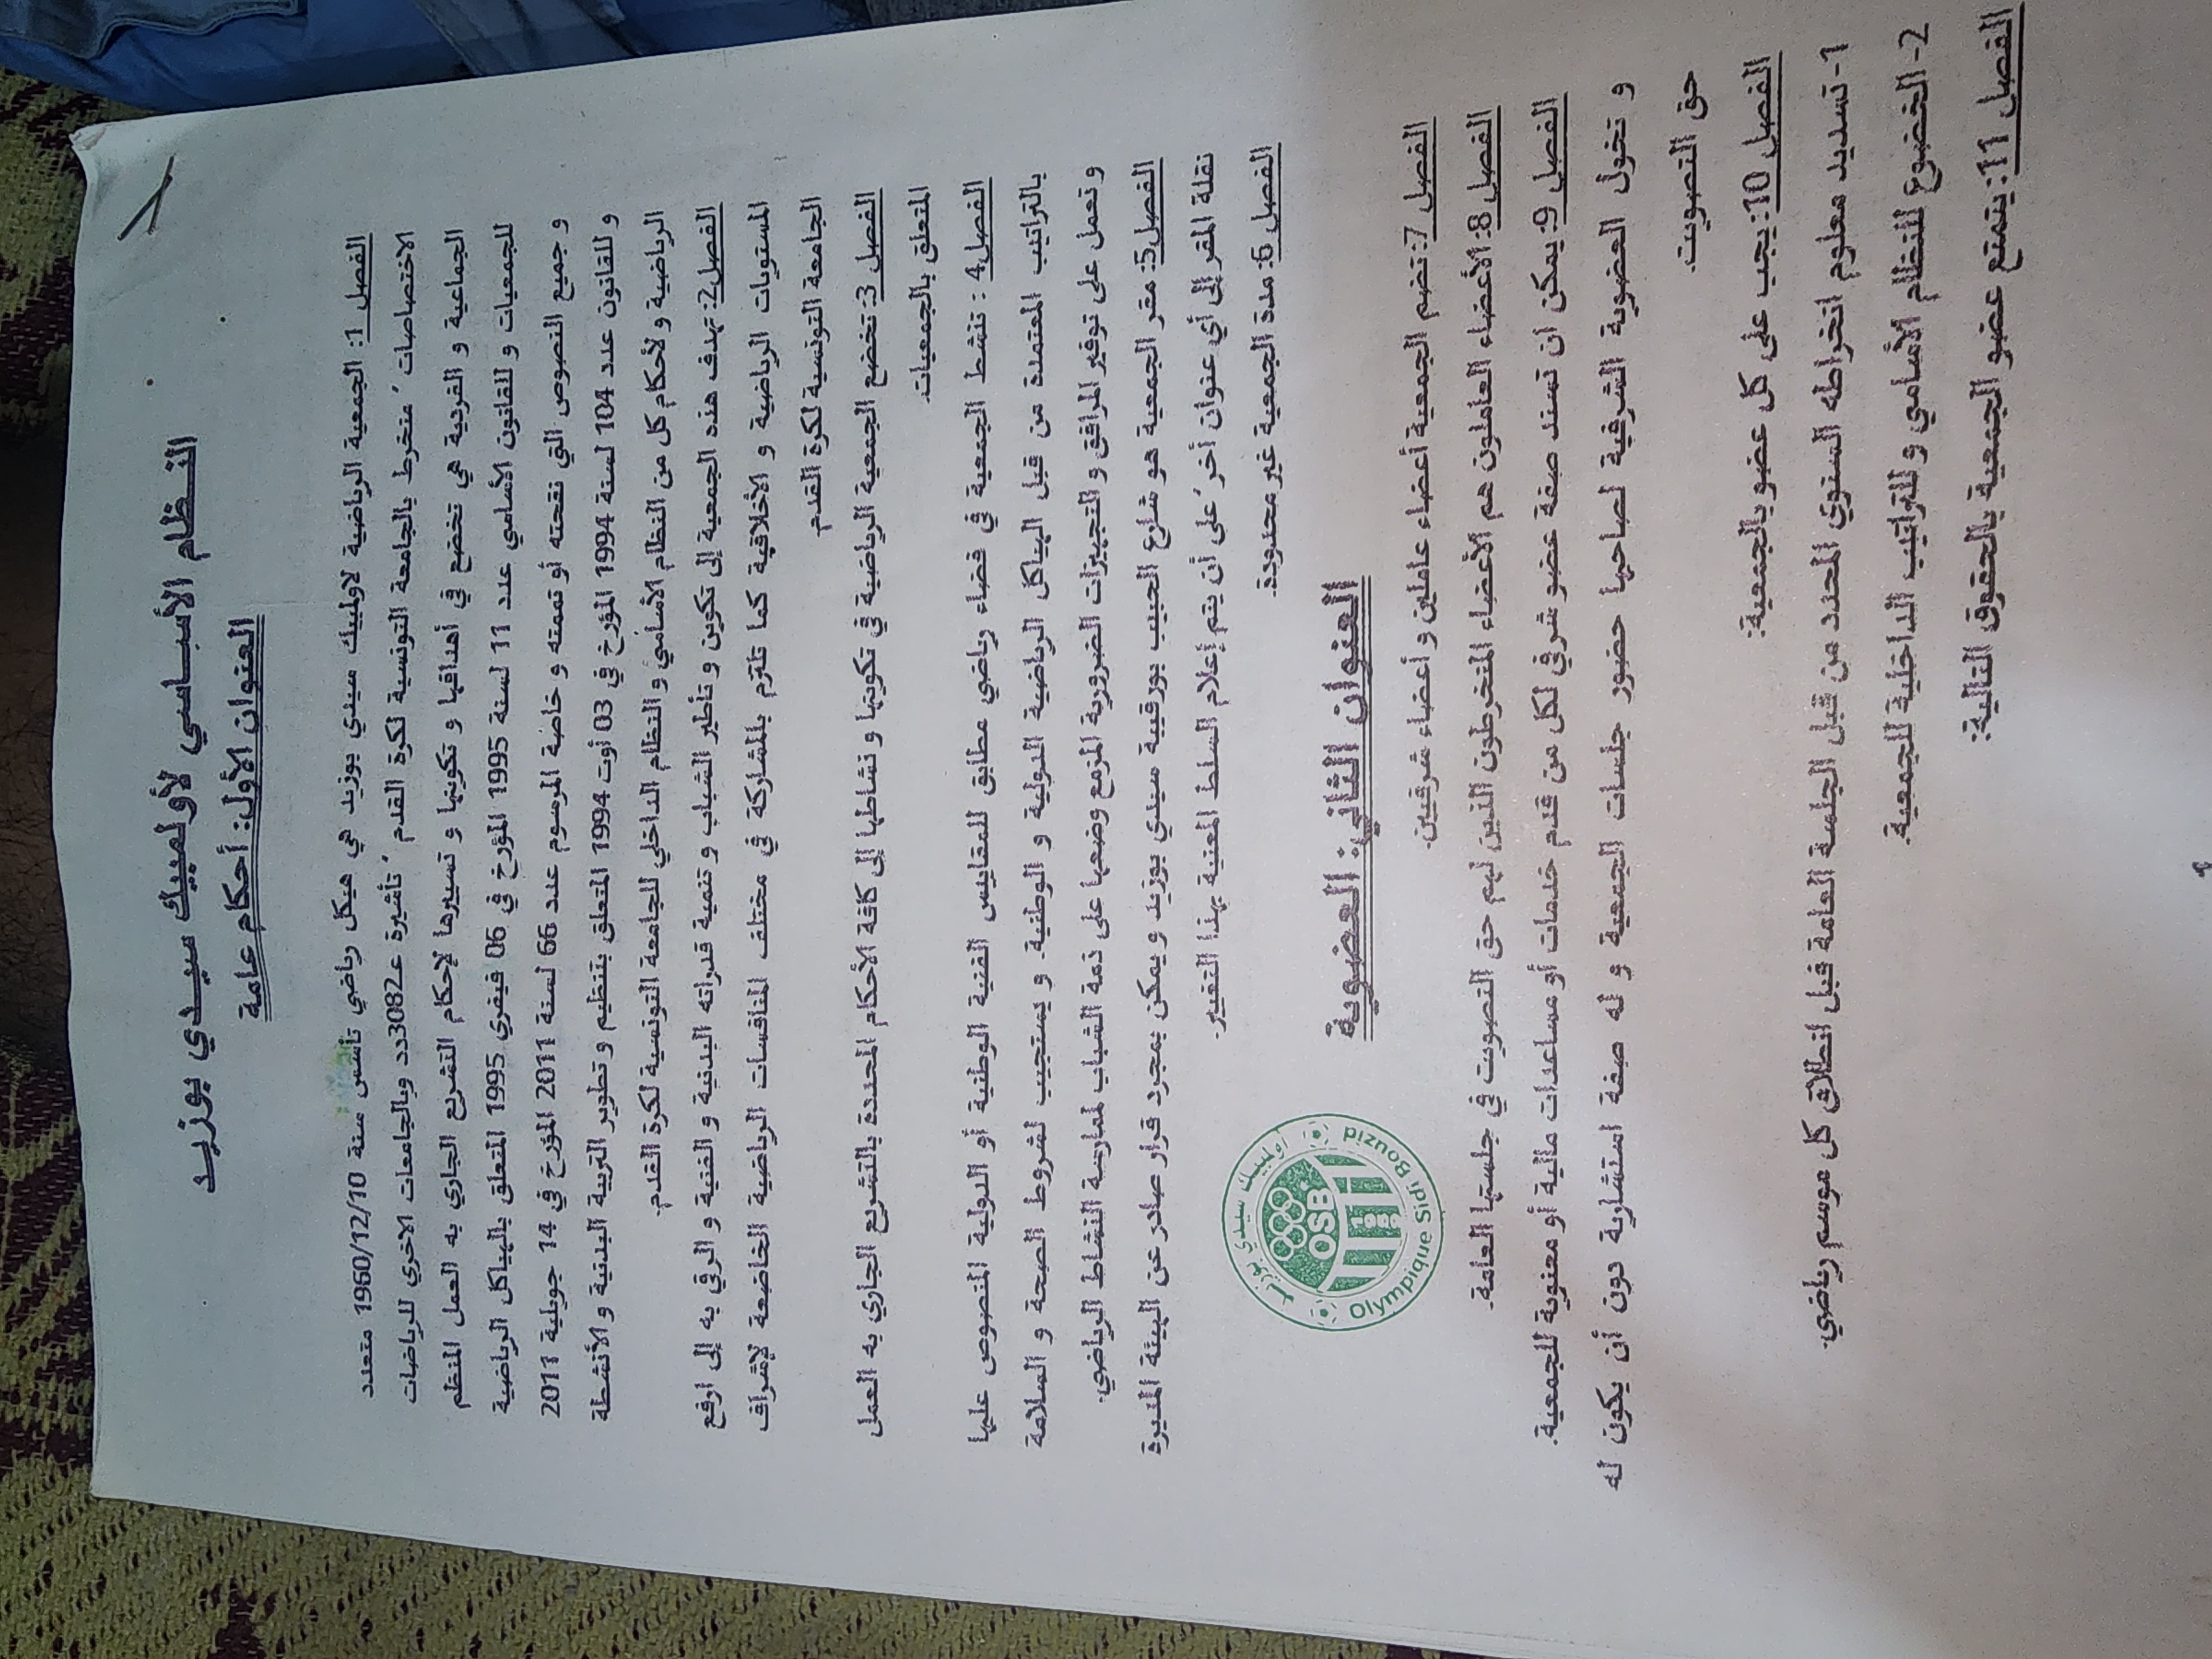 النظام الأساسي لأولمبيك سيدي بوزيد
العنوان الأول: أحكام عامة
الفصل 1: الجمعية الرياضية لاولمبيك سيدي بوزيد هي هيكل رياضي تأسس سنة 1960/12/10 متعدد
الاختصاصات ' منخرط بالجامعة التونسية لكرة القدم ' تأشيرة ع3082دد وبالجامعات الاخرى للرياضات
الجماعية و الفردية هي تخضع في أهدافها و تكوينها و تسييرها لإحكام التشريع الجاري به العمل المنظم
للجمعيات و للقانون الأساسي عدد 11 لسنة 1995 المؤرخ في 06 فيفري 1995 المتعلق بالهياكل الرياضية
و جميع النصوص التي نقحته أو تممته و خاصة المرسوم عدد 66 لسنة 2011 المؤرخ في 14 جويلية 2011
و للقانون عدد 104 لسنة 1994 المؤرخ في 03 أوت 1994 المتعلق بتنظيم و تطوير التربية البدنية و الأنشطة
الرياضية و لأحكام كل من النظام الأساسي و النظام الداخلي للجامعة التونسية لكرة القدم.
الفصل 2: تهدف هذه الجمعية إلى تكوين و تأطير الشباب و تنمية قدراته البدنية و الفنية و الرقي به إلى ارفع
المستويات الرياضية و الأخلاقية كما تلتزم بالمشاركة في مختلف المنافسات الرياضية الخاضعة لإشراف
الجامعة التونسية لكرة القدم
الفصل 3: تخضع الجمعية الرياضية في تكوينها و نشاطها إلى كافة الأحكام المحددة بالتشريع الجاري به العمل
المتعلق بالجمعيات.
الفصل 4 : تنشط الجمعية في فضاء رياضي مطابق للمقاييس الفنية الوطنية أو الدولية المنصوص عليها
بالتراتيب المعتمدة من قبل الهياكل الرياضية الدولية و الوطنية. و يستجيب لشروط الصحة و السلامة
وتعمل على توفير المرافق و التجهيزات الضرورية المزمع وضعها على ذمة الشباب لممارسة النشاط الرياضي.
الفصل 5: مقر الجمعية هو شارع الحبيب بورقيبة سيدي بوزيد و يمكن بمجرد قرار صادر عن الهيئة المديرة
نقلة المقر إلى أي عنوان أخر'على أن يتم إعلام السلط المعنية بهذا التغيير.
الفصل 6: مدة الجمعية غير محدودة.
العنوان الثاني: العضوية
أولمبيك سيدي بوزيد
OSB
Olympique Sidi Bouzid
الفصل 7: تضم الجمعية أعضاء عاملين و أعضاء شرفيين.
الفصل 8: الأعضاء العاملون هم الأعضاء المنخرطون الذين لهم حق التصويت في جلستها العامة.
الفصل 9: يمكن ان تسند صفة عضو شرفي لكل من قدم خدمات أو مساعدات مالية أو معنوية للجمعية.
و تخول العضوية الشرفية لصاحبها حضور جلسات الجمعية و له صفة استشارية دون أن يكون له
حق التصويت.
الفصل 10: يجب على كل عضو بالجمعية:
1- تسديد معلوم انخراطه السنوي المحدد من قبل الجلسة العامة قبل انطلاق كل موسم رياضي.
2- الخضوع للنظام الأساسي و للتراتيب الداخلية للجمعية.
الفصل 11: يتمتع عضو الجمعية بالحقوق التالية: